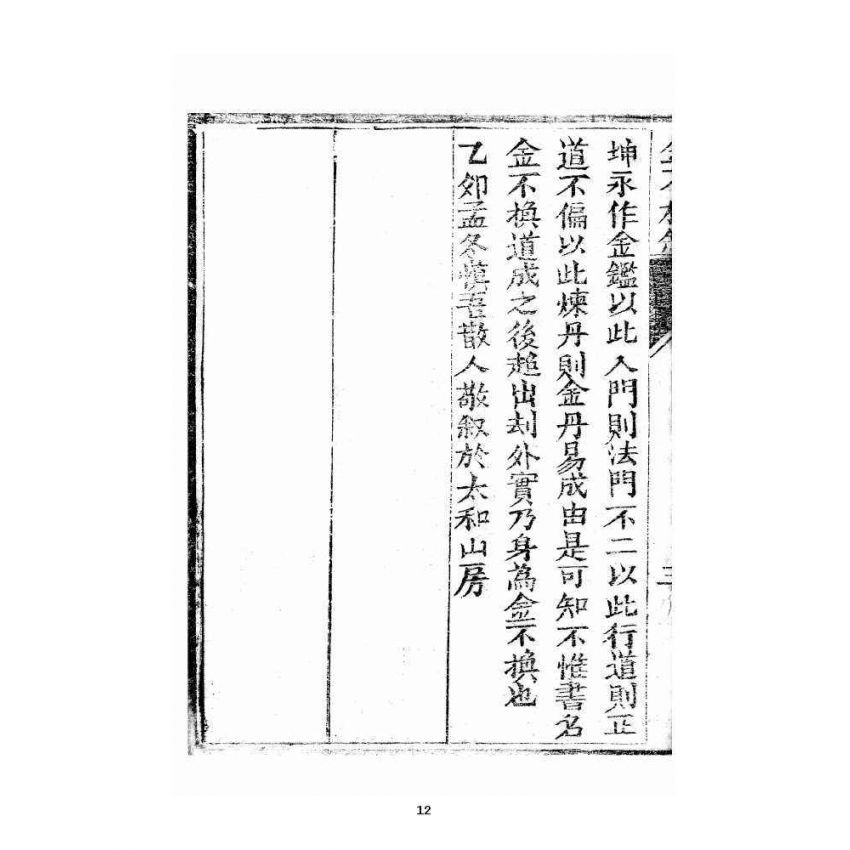 坤永作金鑑以此入門則法門不二以此行道則正
道不偏以此煉丹則金丹易成由是可知不惟書名
金不換道成之後趂出刦外實乃身為金不換也
乙卯孟冬慎吾散人敬叙於太和山房
三
12